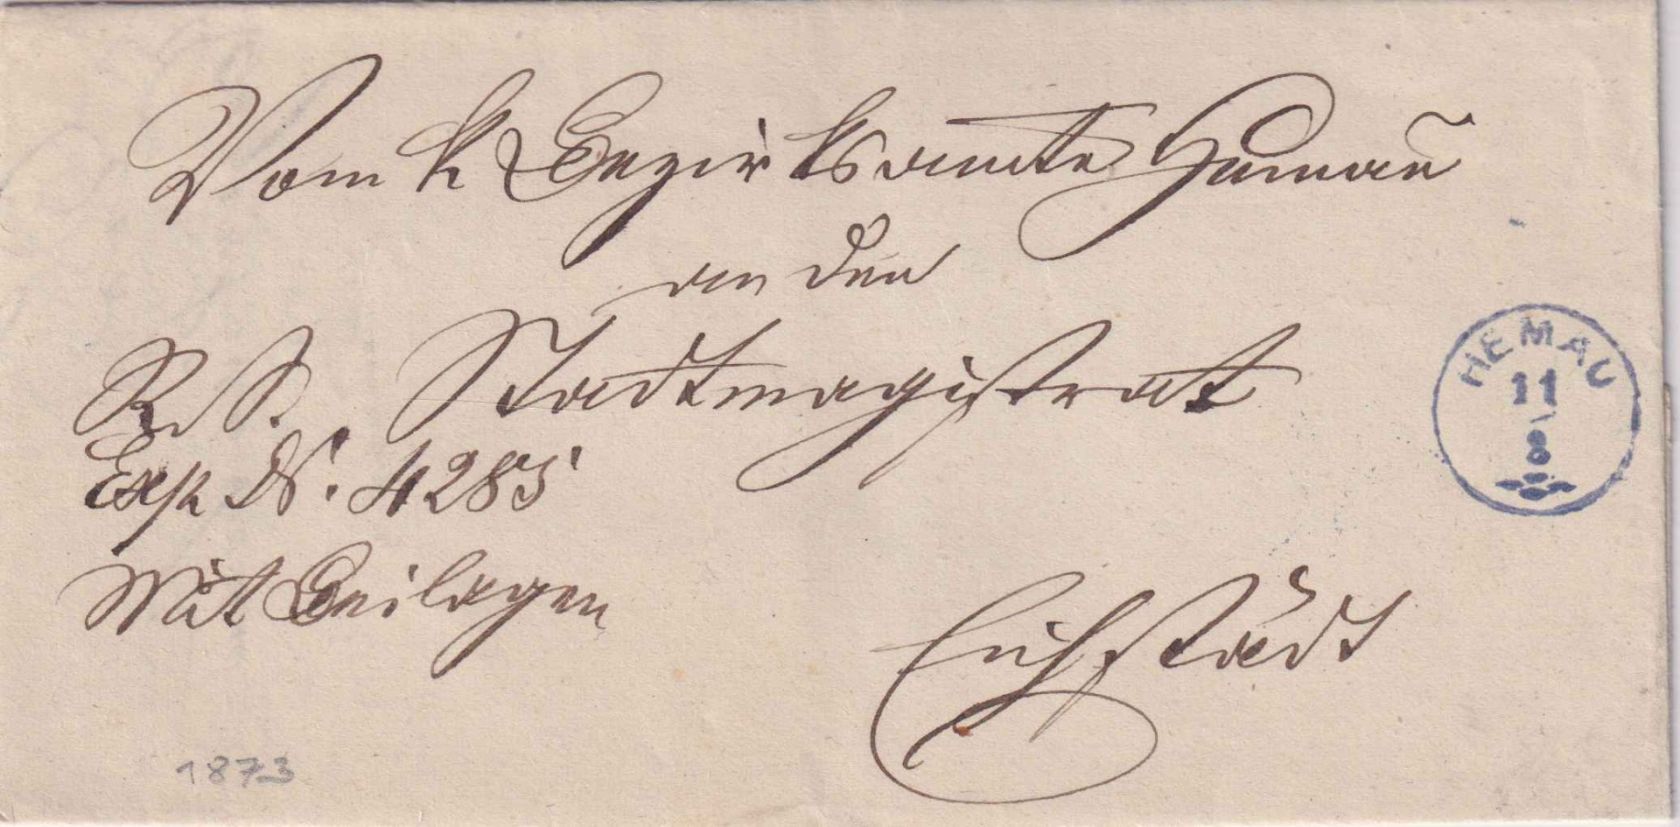 Vom k Bezirksamte Hemau
an den
R. S. Stadtmagistrat
Exp. N. 4285
Mit Beilagen
Eichstädt
HEMAU
11
8
1873